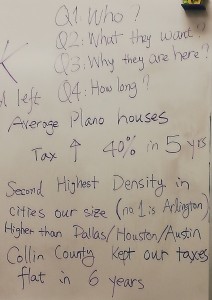 Q1: Who?
Q2: What they want?
K
Q3: Why they are here?
left
Q4: How long?
Average Plano houses
Tax ↑ 40% in 5 yrs
Second Highest Density in
cities our size (no 1 is Arlington)
Higher than Dallas/Houston/Austin
Collin County kept our taxes
flat in 6 years